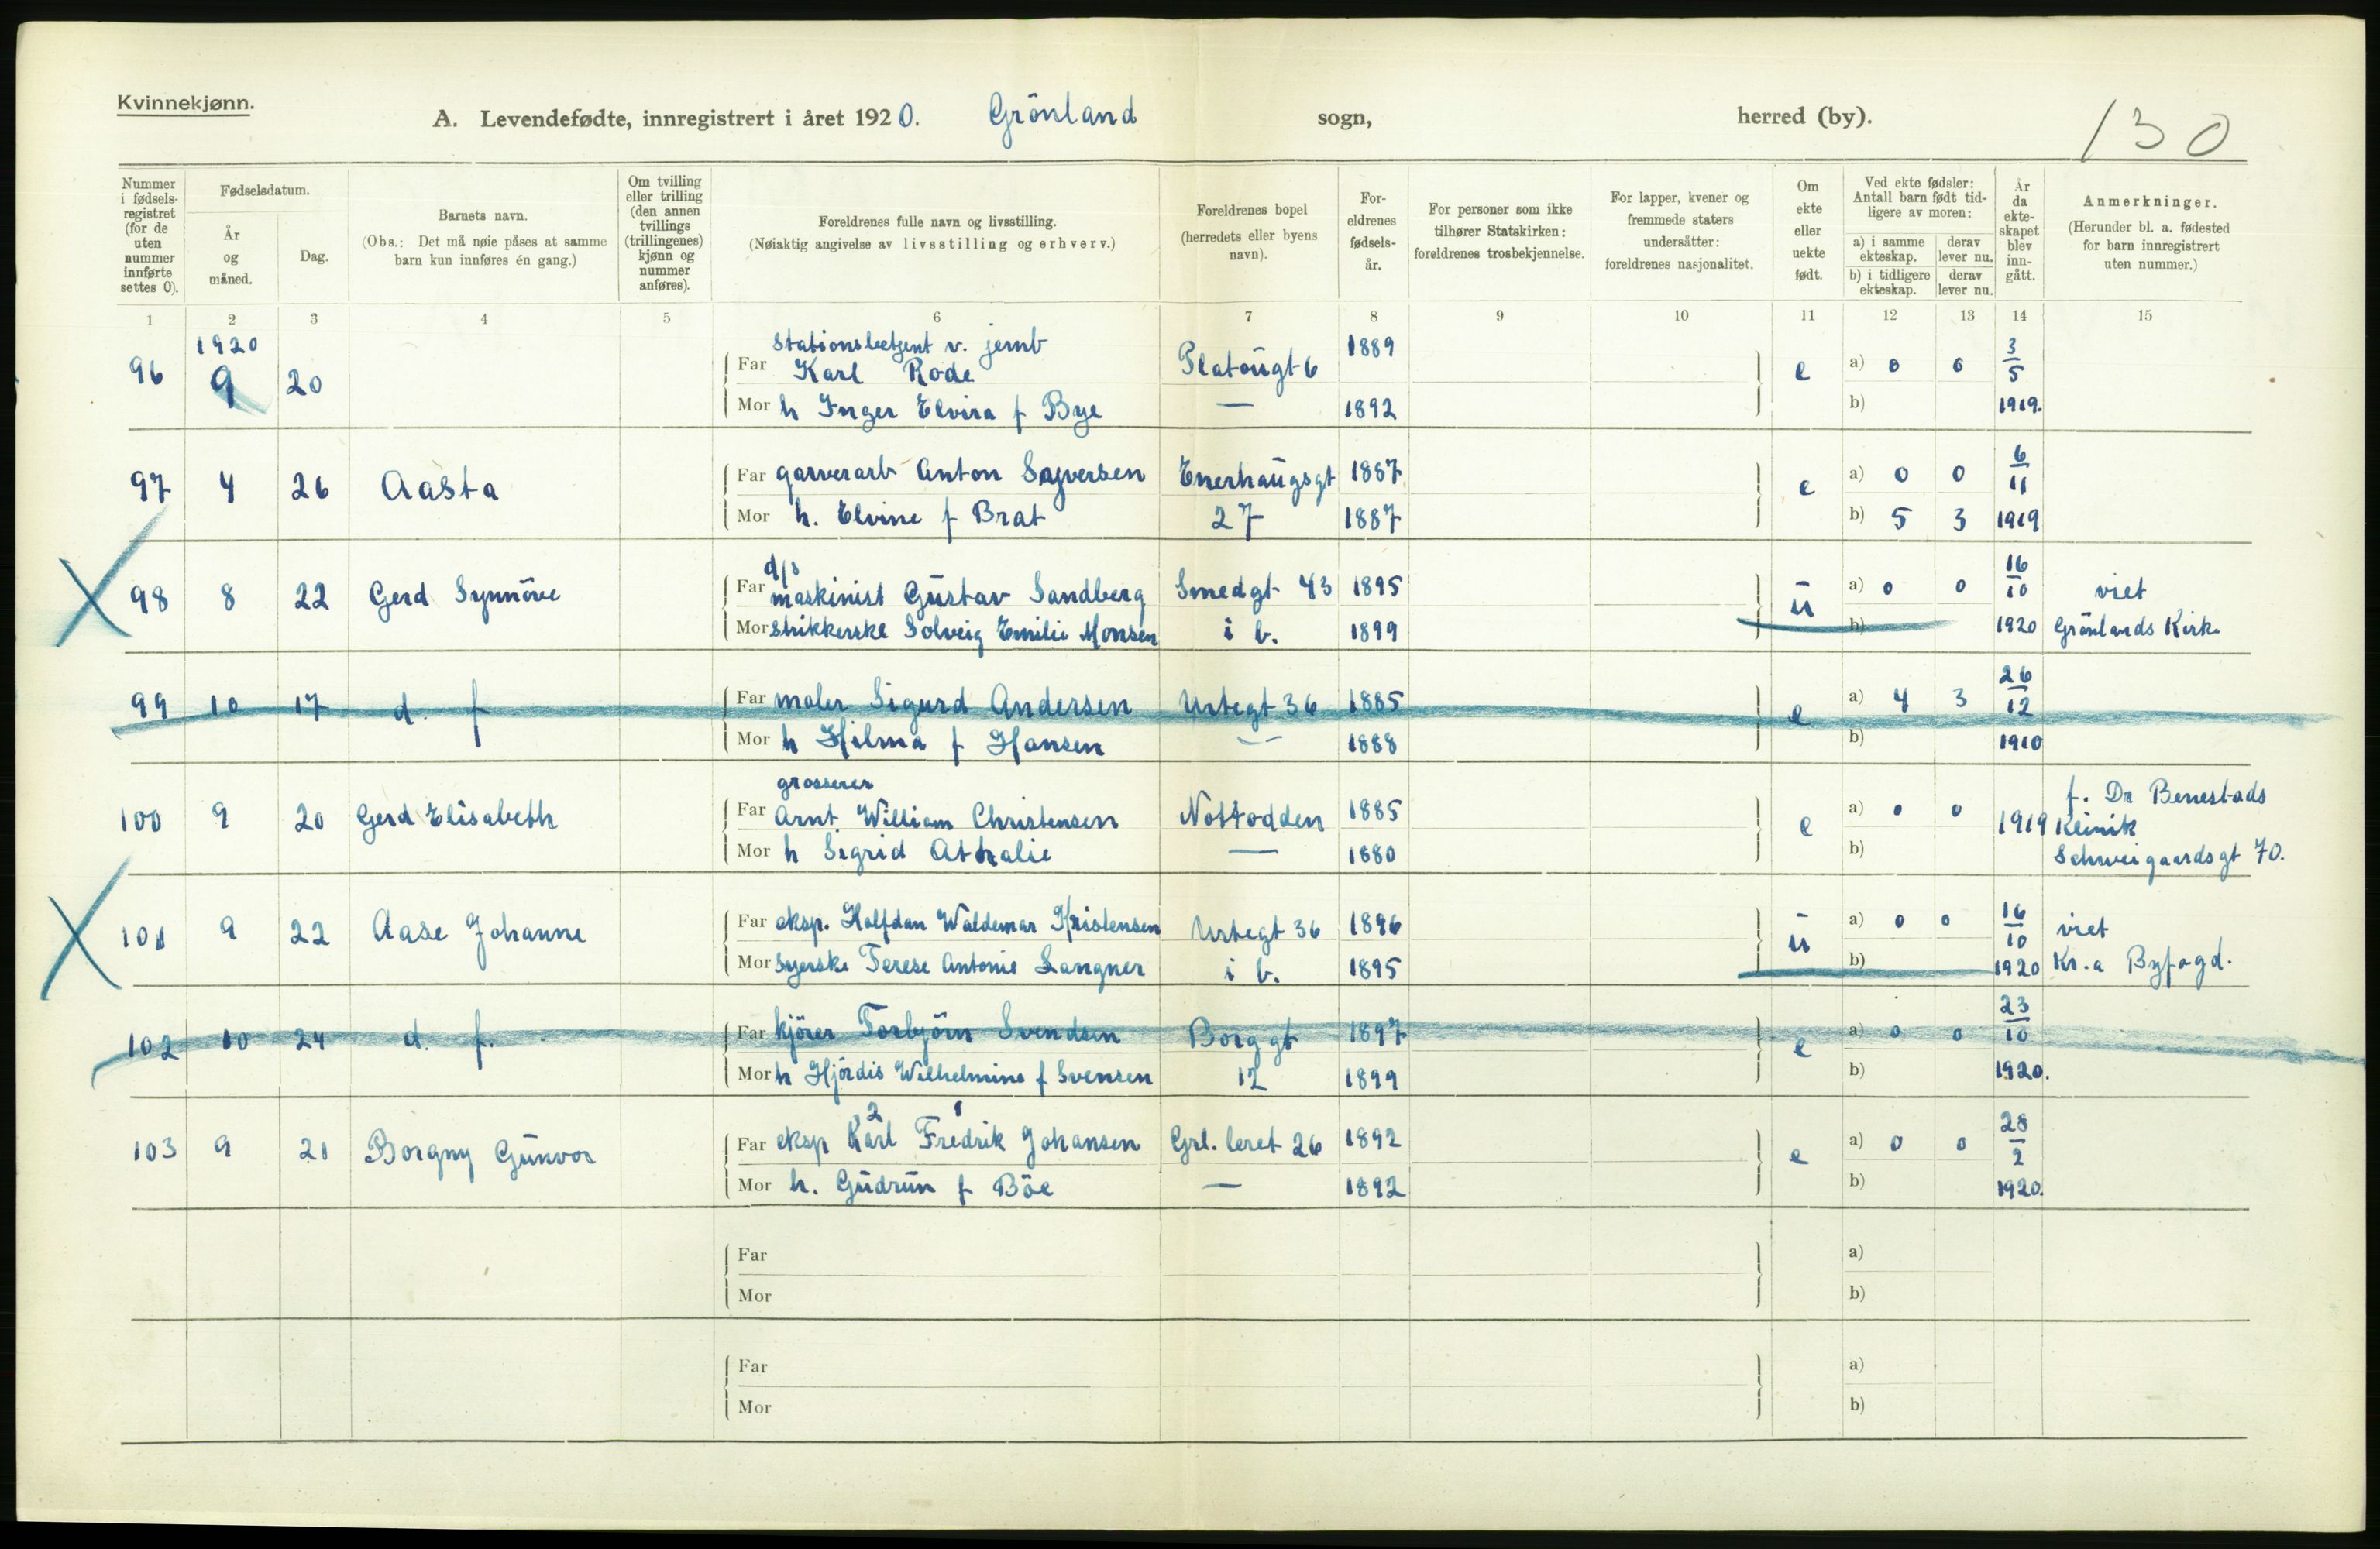 Kvinnekjønn.
A. Levendefødte, innregistrert i året 1920. Grönland sogn, herred (by). 130
Nummer i fødselsregistret (for de uten nummer innførte settes 0).
Fødselsdatum.
År og måned.
Dag.
Barnets navn.
(Obs.: Det må nøie påses at samme barn kun innføres én gang.)
Om tvilling eller trilling (den annen tvillings (trillingenes) kjønn og nummer anføres).
Foreldrenes fulle navn og livsstilling.
(Nøiaktig angivelse av livsstilling og erhverv.)
Foreldrenes bopel (herredets eller byens navn).
Foreldrenes fødselsår.
For personer som ikke tilhører Statskirken: foreldrenes trosbekjennelse.
For lapper, kvener og fremmede staters undersåtter: foreldrenes nasjonalitet.
Om ekte eller uekte født.
Ved ekte fødsler: Antall barn født tidligere av moren:
a) i samme ekteskap. derav lever nu.
b) i tidligere ekteskap. derav lever nu.
År da ekteskapet blev inngått.
Anmerkninger.
(Herunder bl. a. fødested for barn innregistrert uten nummer.)
1 2 3 4 5 6 7 8 9 10 11 12 13 14 15
1920 stationsbetjent v. jernb
96 9 20 Far Karl Rode Platougt 6 1889 e a) 0 0 3/5
Mor h Inger Elvira f Bye — 1892 b) 1919.
97 4 26 Aasta Far garverarb Anton Syversen Enerhaugsgt 1887 e a) 0 0 6/11
Mor h. Elvine f Brat 27 1887 b) 5 3 1919
d/s
98 8 22 Gerd Synnöve Far maskinist Gustav Sandberg Smedgt 43 1895 u a) 0 0 16/10 viet
Mor strikkerske Solveig Emilie Monsen i b. 1899 b) 1920 Grönlands Kirke
99 10 17 d. f Far maler Sigurd Andersen Urtegt 36 1885 e a) 4 3 26/12
Mor h Hilma f Hansen — 1888 b) 1910
grosserer
100 9 20 Gerd Elisabeth Far Arnt William Christensen Nottodden 1885 e a) 0 0 1919 f. Dr Benestads Klinik
Mor h Sigrid Athalie — 1880 b) Schweigaardsgt 70.
101 9 22 Aase Johanne Far eksp. Halfdan Waldemar Kristensen Urtegt 36 1896 u a) 0 0 16/10 viet
Mor Syerske Terese Antonie Langner i b. 1895 b) 1920 Kr.a Byfogd.
102 10 24 d. f. Far kjörer Torbjörn Svendsen Borggt 1897 e a) 0 0 23/10
Mor h Hjördis Wilhelmine f Svensen 12 1899 b) 1920.
2 1
103 9 21 Borgny Gunvor Far eksp Karl Fredrik Johansen Grl. leret 26 1892 e a) 0 0 28/2
Mor h. Gudrun f Böe — 1892 b) 1920.
Far a)
Mor b)
Far a)
Mor b)